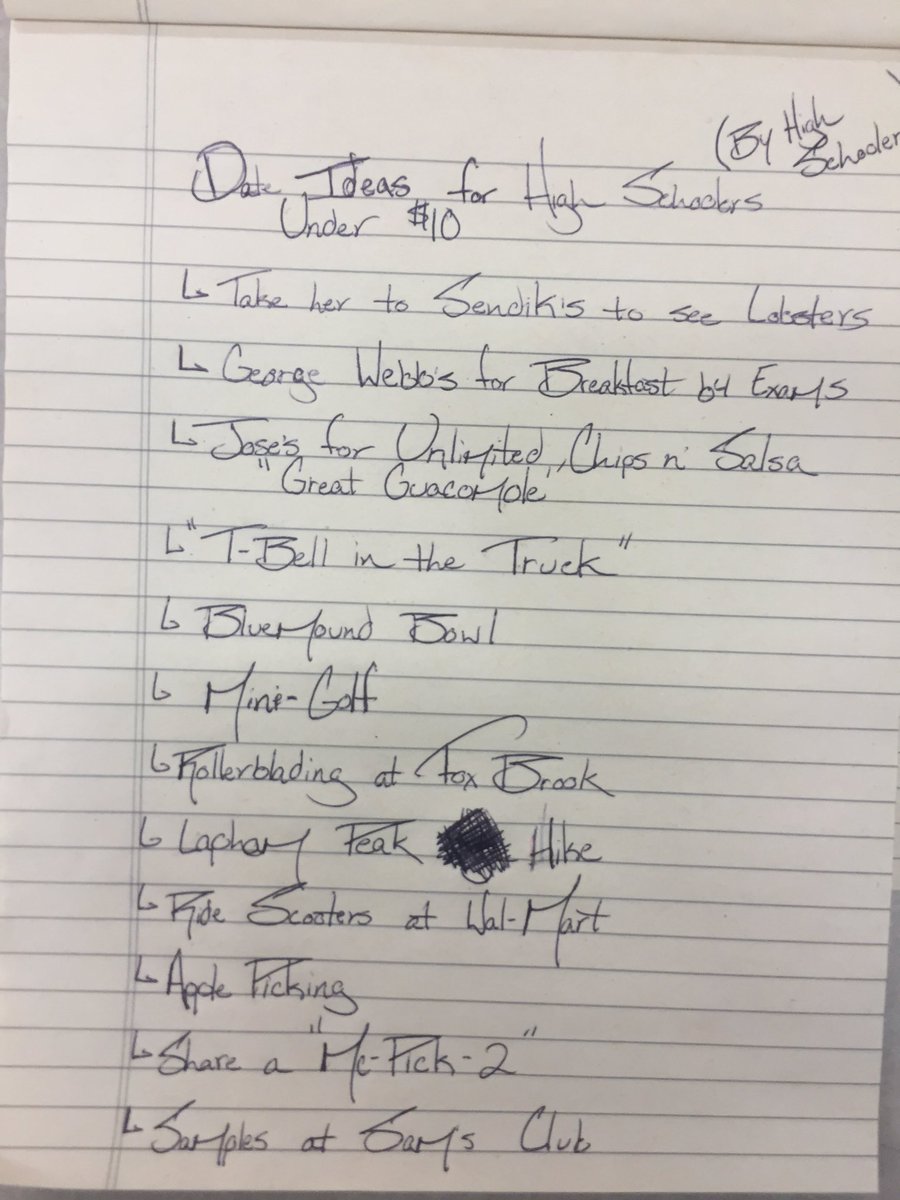 (By High
Schooler
Date Ideas for High Schoolers
Under $10
↳ Take her to Sendik's to see Lobsters
↳ George Webb's for Breakfast b4 Exams
↳ Jose's for Unlimited Chips n' Salsa
"Great Guacamole"
↳ "T-Bell in the Truck"
↳ Bluemound Bowl
↳ Mini-Golf
↳ Rollerblading at Fox Brook
↳ Lapham Peak Hike
↳ Ride Scooters at Wal-Mart
↳ Apple Picking
↳ Share a "Mc-Pick-2"
↳ Samples at Sam's Club